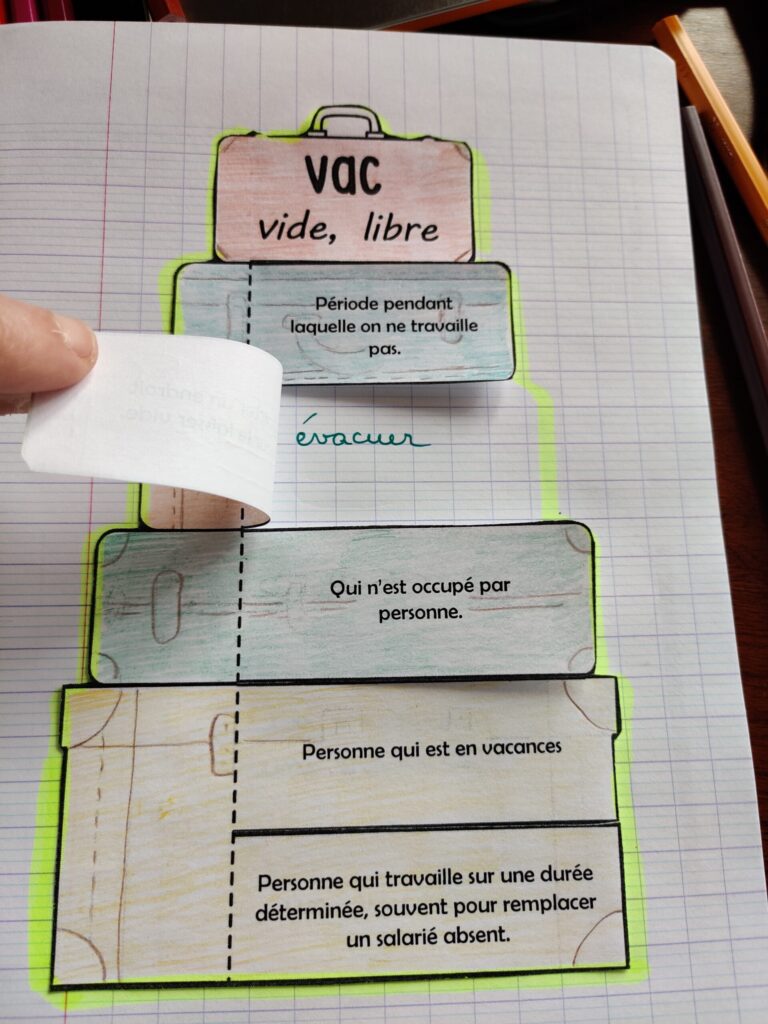 vac
vide, libre
Période pendant
laquelle on ne travaille
pas.
évacuer
Qui n'est occupé par
personne.
Personne qui est en vacances
Personne qui travaille sur une durée
déterminée, souvent pour remplacer
un salarié absent.